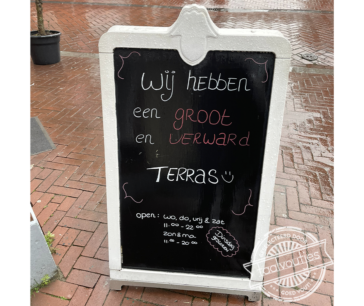 Wij hebben
een GROOT
en VERWARD
TERRAS
open: wo, do, vrij & zat
11.00 - 22.00
zon & ma.
11.00 - 20.00
Dinsdag
gesloten
taalvoutjes